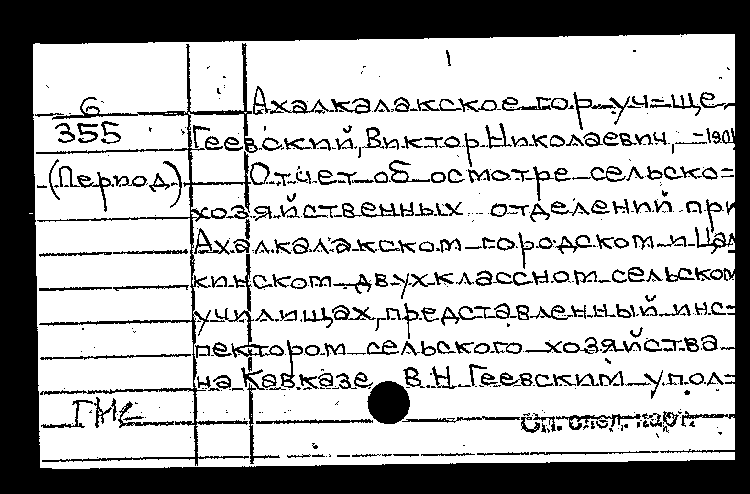 1
6
355
(Период)
Ахалкалакское гор. уч-ще.
Геевский, Виктор Николаевич, -1901
Отчет об осмотре сельско=
хозяйственных отделений при
Ахалкалакском городском и Цал
кинском двухклассном сельском
училищах, представленный инс=
пектором сельского хозяйства
на Кавказе В.Н. Геевским упол=
ГМС
См. след. карт.